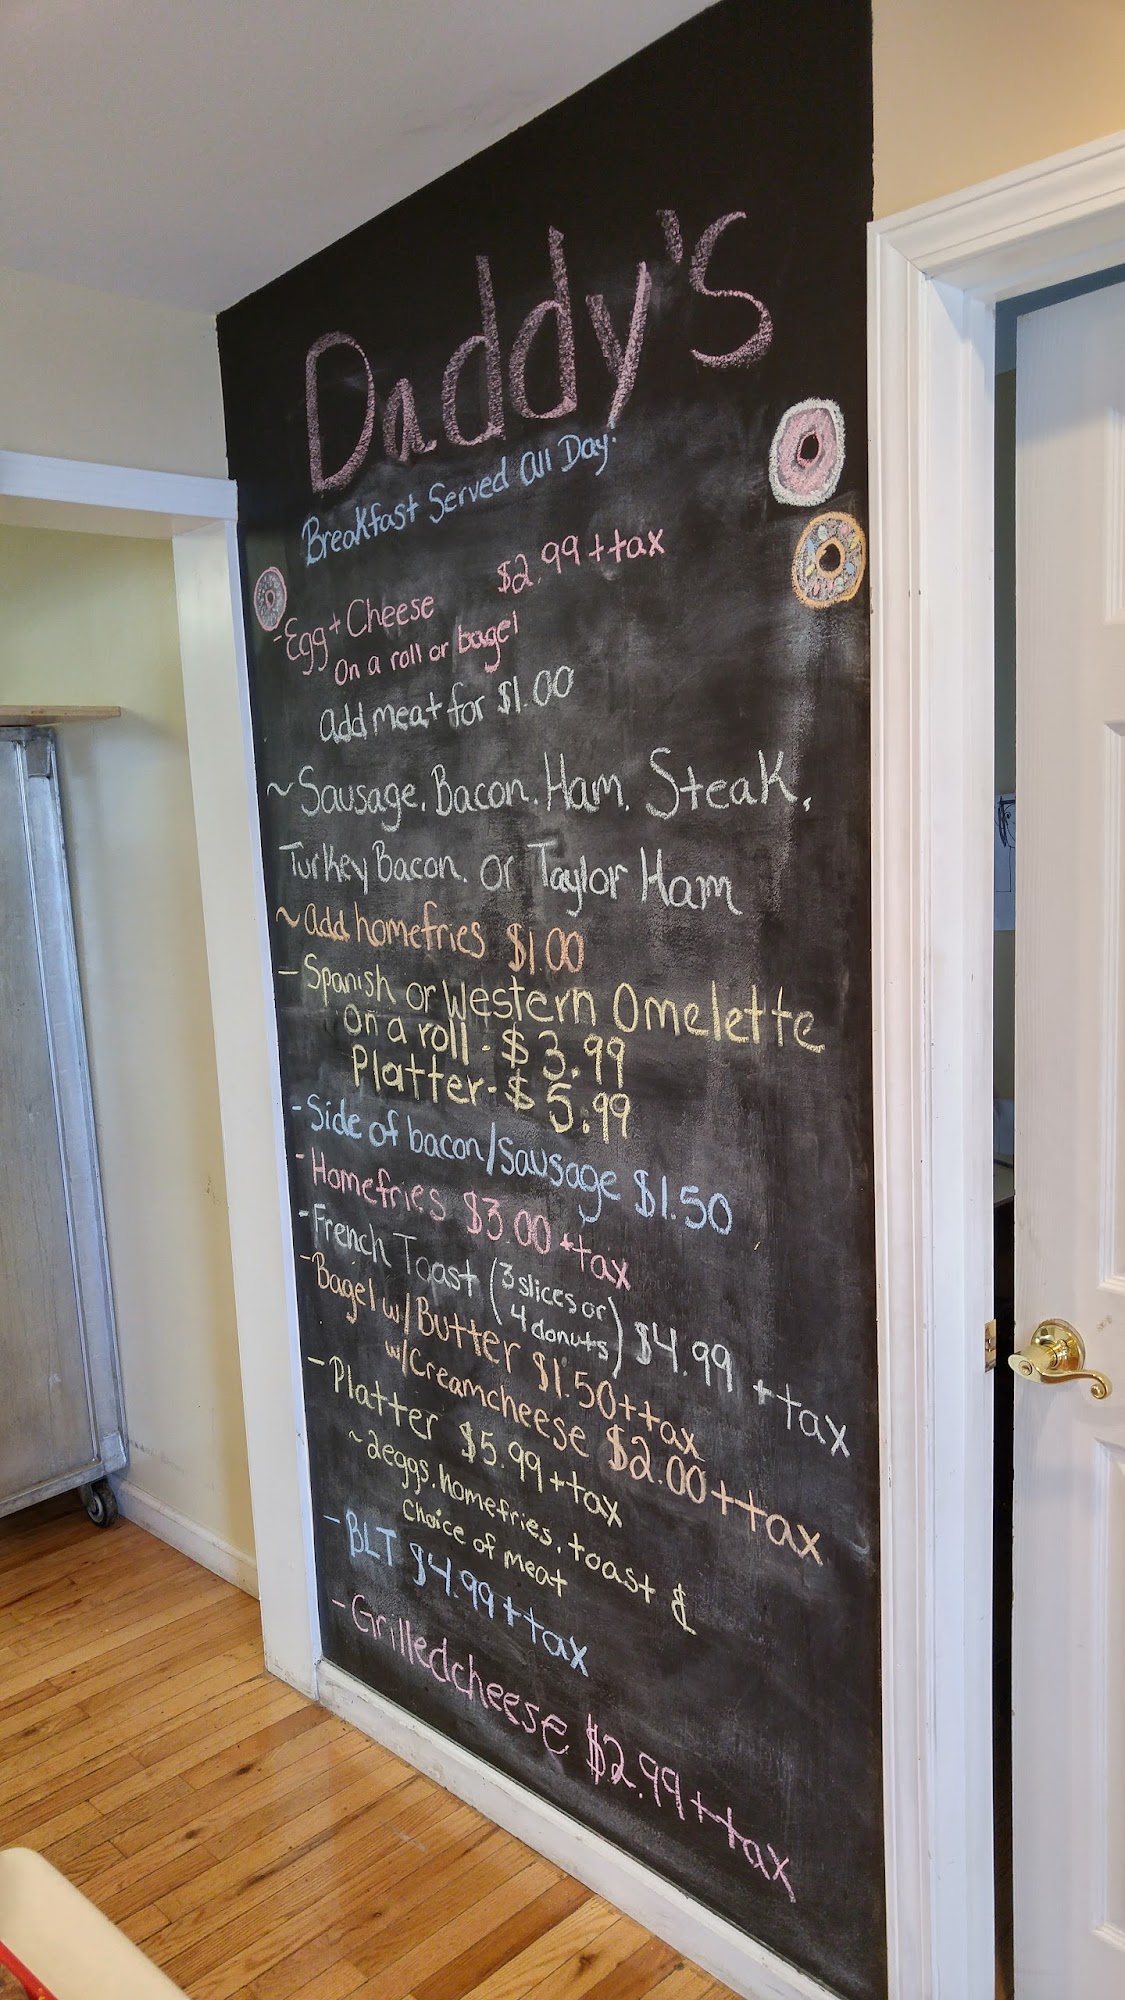 Daddy's
Breakfast Served All Day.
-Egg + Cheese $2.99 + tax
on a roll or bagel
add meat for $1.00
~Sausage, Bacon, Ham, Steak,
Turkey Bacon, or Taylor Ham
~add homefries $1.00
- Spanish or Western Omelette
on a roll - $3.99
Platter - $5.99
- Side of bacon/sausage $1.50
- Homefries $3.00 + tax
- French Toast (3 slices or 4 donuts) $4.99 + tax
- Bagel w/ Butter $1.50 + tax
w/ Creamcheese $2.00 + tax
- Platter $5.99 + tax
~2 eggs, homefries, toast &
choice of meat
- BLT $4.99 + tax
- Grilledcheese $2.99 + tax